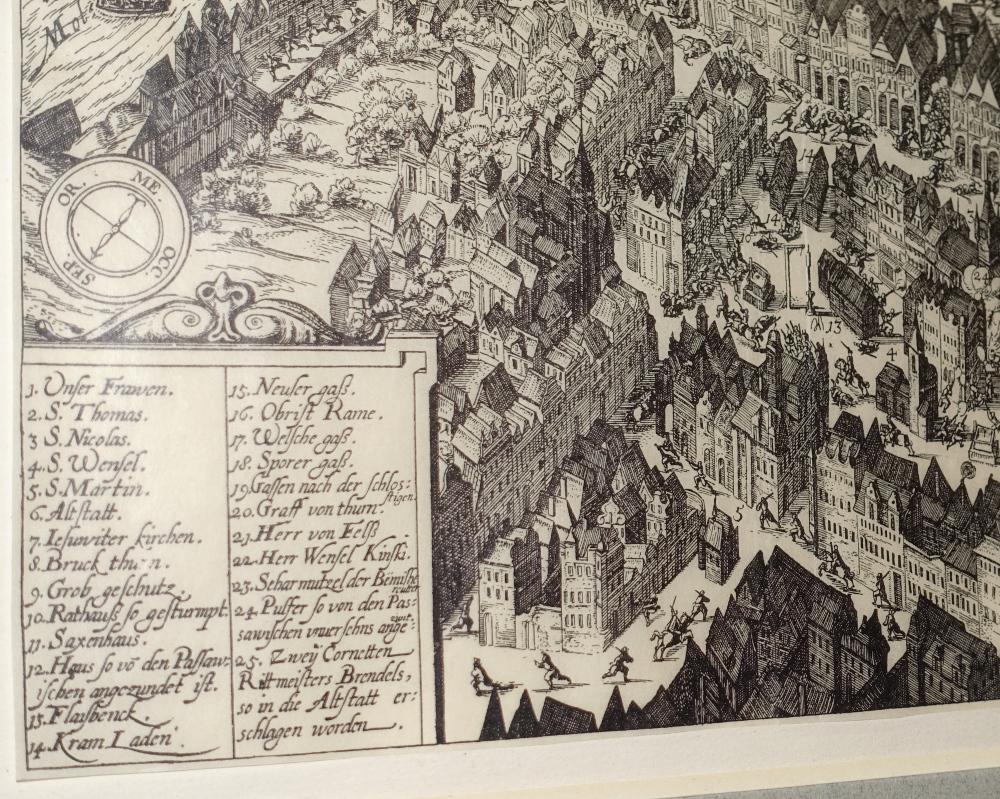 Mol
OR. ME.
SEP. OCC.
1. Vnser Frawen.
2. S. Thomas.
3 S. Nicolas.
4. S. Wensel.
5. S. Martin.
6. Altstatt.
7. Iesuwiter kirchen.
8. Bruck thurn.
9. Grob geschutz.
10. Rathauss so gesturmpt.
11. Saxenhaus.
12. Haus so vō den Passaw:
ischen angezundet ist.
13. Flaisbenck.
14. Kram Laden.
15. Neuser gaß.
16. Obrist Rame.
17. Welsche gaß.
18. Sporer gaß.
19 Gassen nach der schlos:
stigen.
20. Graff von thurn.
21. Herr von Felß
22. Herr Wensel Kinski.
23. Scharmutzel der Bemische
reuter
24. Pulfer so von den Pas:
sawischen vnuersehns ange:
zunt.
25. Zweÿ Cornetten
Rittmeisters Brendels,
so in die Altstatt er:
schlagen worden.
14
14
13
4
5